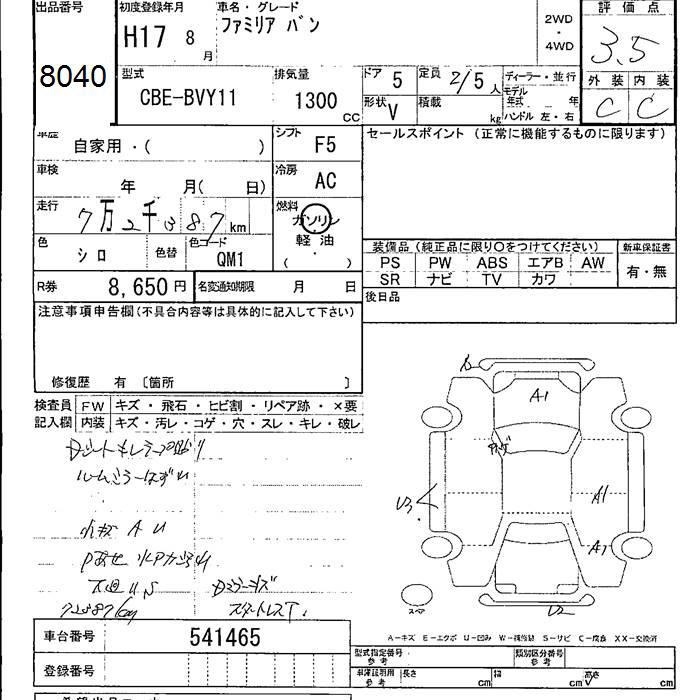 出品番号 初度登録年月 車名・グレード 評価点
8040 H17 8月 ファミリア バン 2WD・4WD 3.5
型式 排気量 ドア 定員 ディーラー・並行 外装 内装
CBE-BVY11 1300 CC 5 2/5人 モデル年式 年 C C
形状 V 積載 kg ハンドル 左・右
車歴 自家用・( ) シフト F5 セールスポイント (正常に機能するものに限ります)
車検 年 月( 日) 冷房 AC
走行 7万2千387km 燃料 ガソリン・軽油・( )
色 シロ 色替 色コード QM1
装備品 (純正品に限り○をつけてください) 新車保証書
PS PW ABS エアB AW 有・無
SR ナビ TV カワ
R券 8,650円 名変通知期限 月 日 後日品
注意事項申告欄(不具合内容等は具体的に記入して下さい)
修復歴 有 〔箇所 〕
検査員 FW キズ・飛石・ヒビ割・リペア跡・×要
記入欄 内装 キズ・汚レ・コゲ・穴・スレ・キレ・破レ
ルームミラーはずれ
A U
72387km
A1
U3
A1
A1
U2
A-キズ E-エクボ U-凹み W-補修跡 S-サビ C-腐食 XX-交換済
車台番号 541465
登録番号
型式指定番号 参考 類別区分番号 参考
車庫証明用 参考 長さ cm 幅 cm 高さ cm